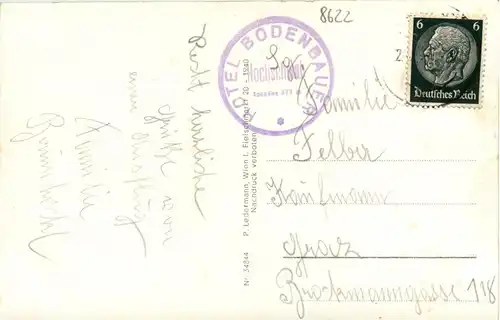 8622
6
Deutsches Reich
2.
HOTEL BODENBAUER
Hochschwab
Recht herzliche
Grüße vom
Ausflug
Familie
P. Ledermann, Wien I, Fleischmarkt 20 - 1940
Nachdruck verboten
Nr. 34844
Familie
Felber
Kaufmann
Graz
Brockmanngasse 118